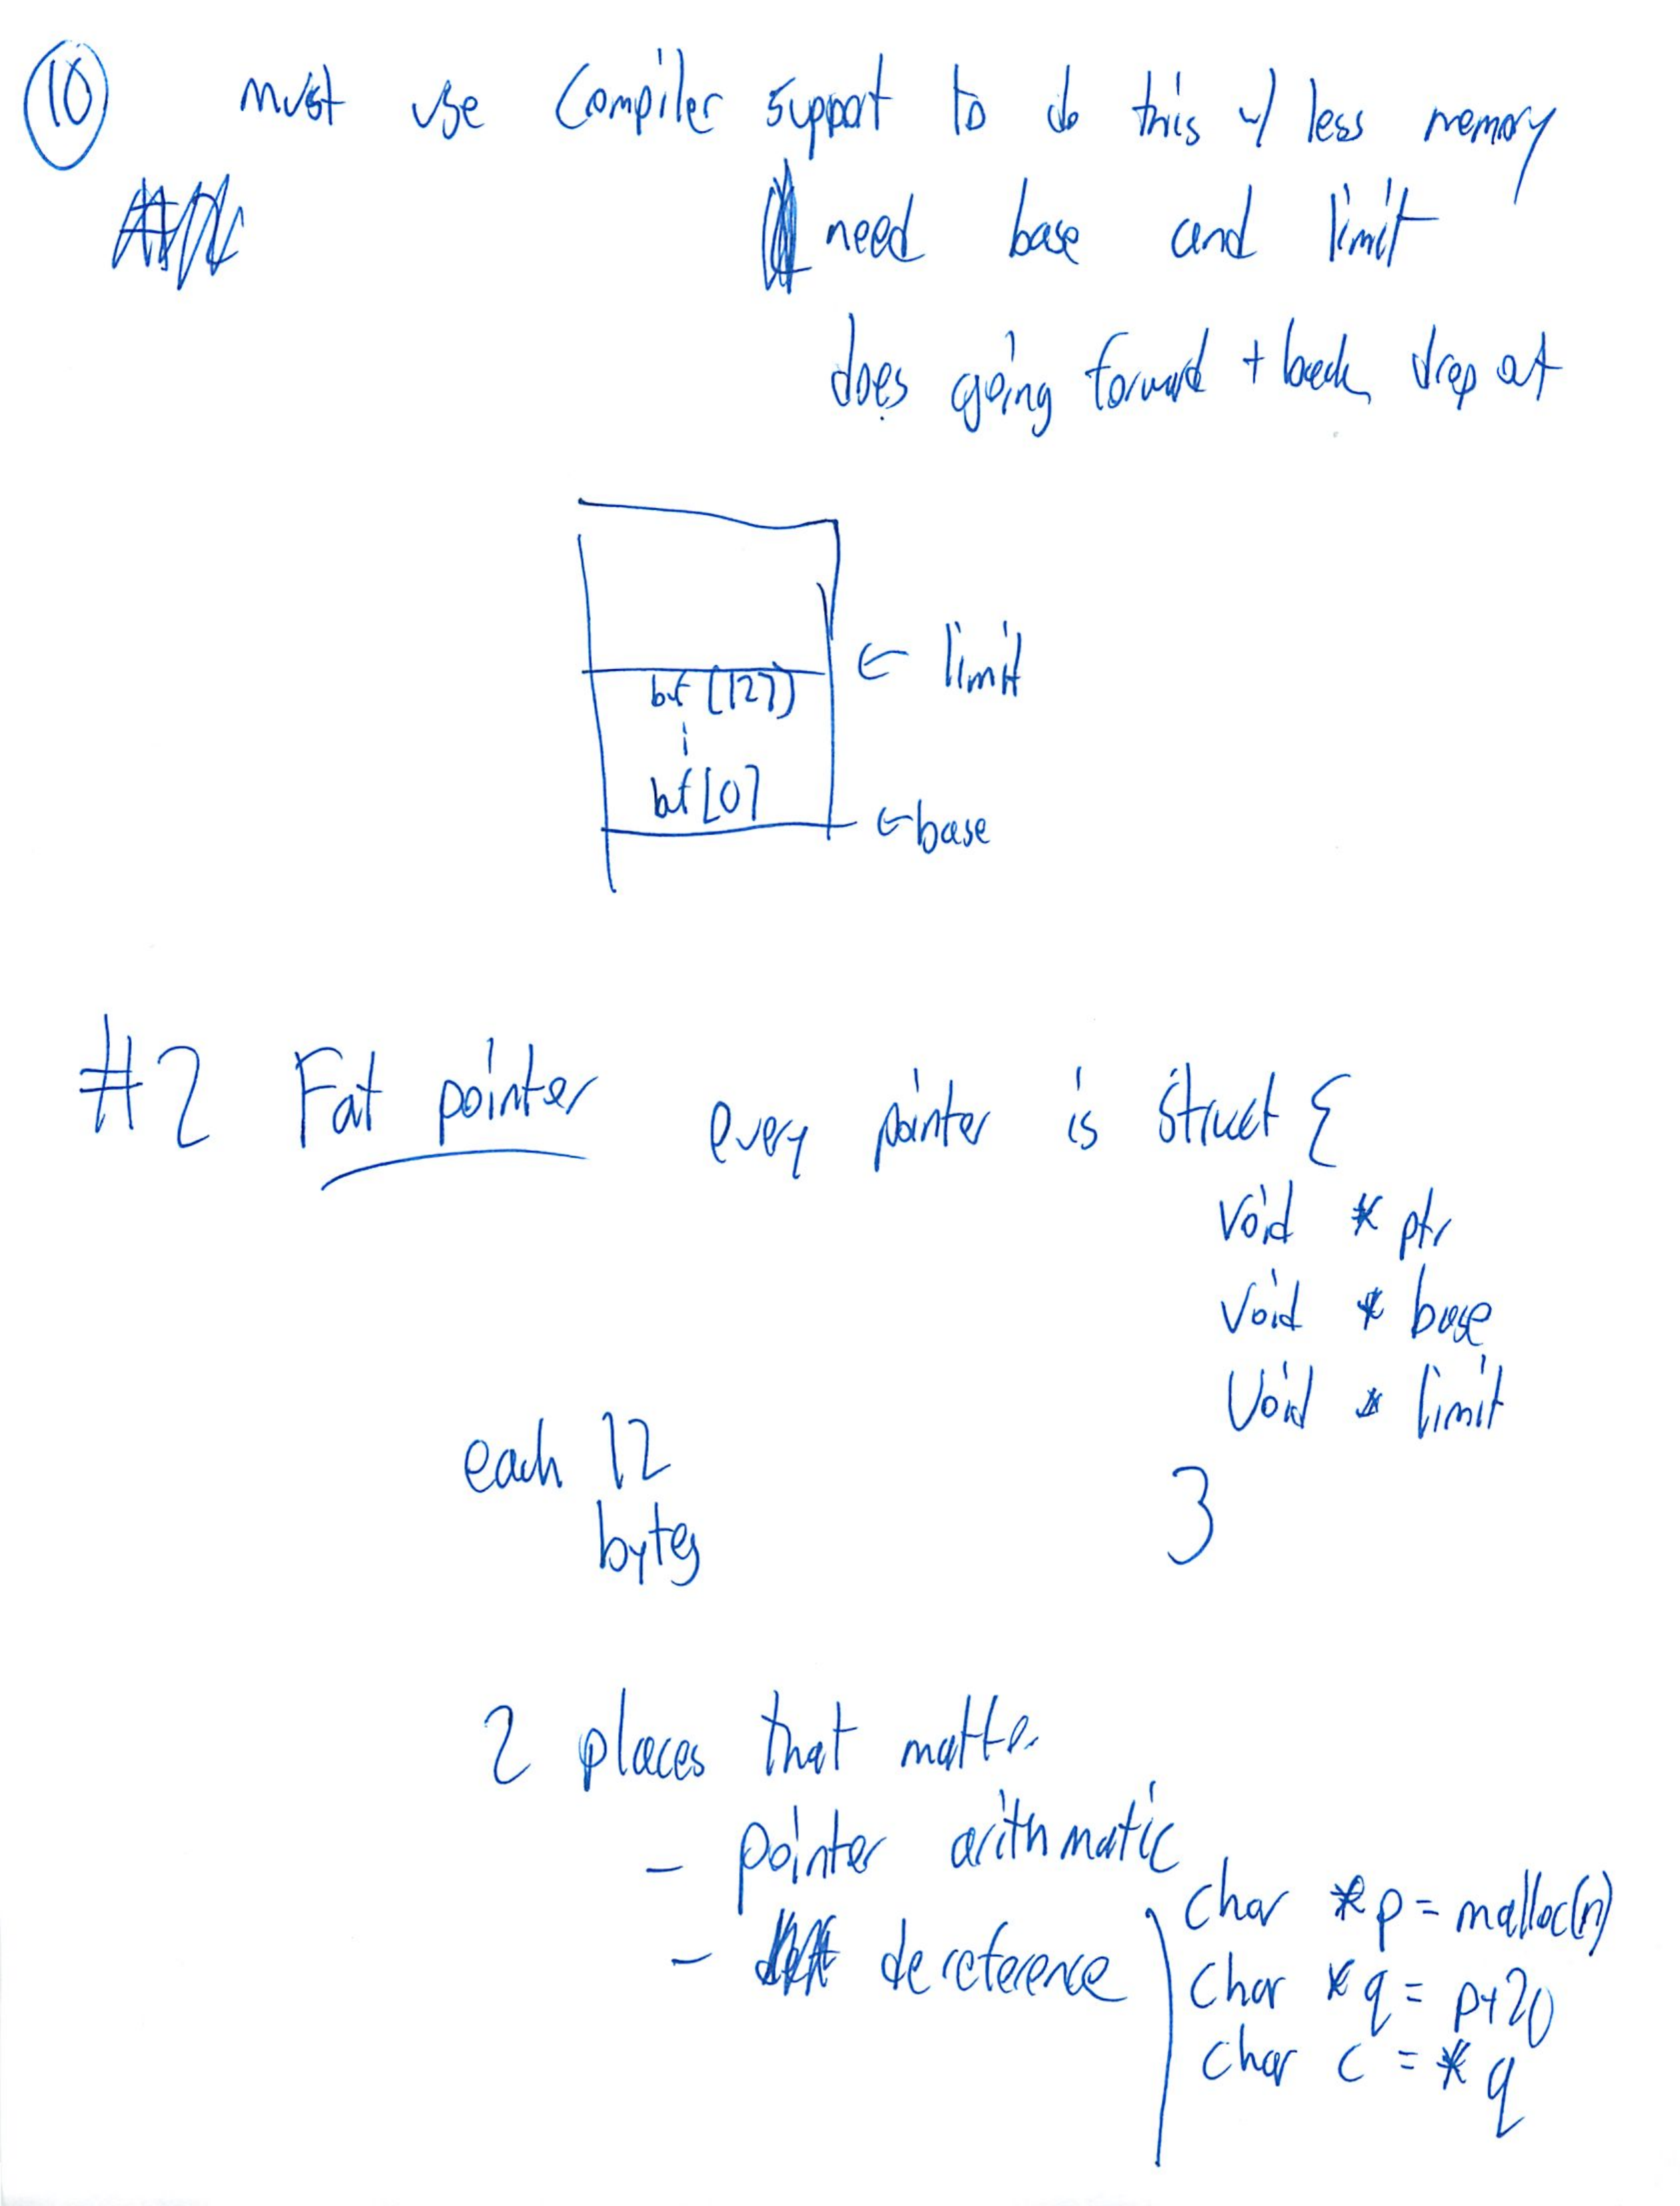 10 must use compiler support to do this w/ less memory
need base and limit
does going forward + back drop at
← limit
buf [127]
buf [0]
← base
#2 Fat pointer every pointer is struct {
void * ptr
void * base
void * limit
each 12
bytes
}
2 places that matter
- pointer arithmatic
- dereference
char *p = malloc(n)
char *q = p+20
char c = *q